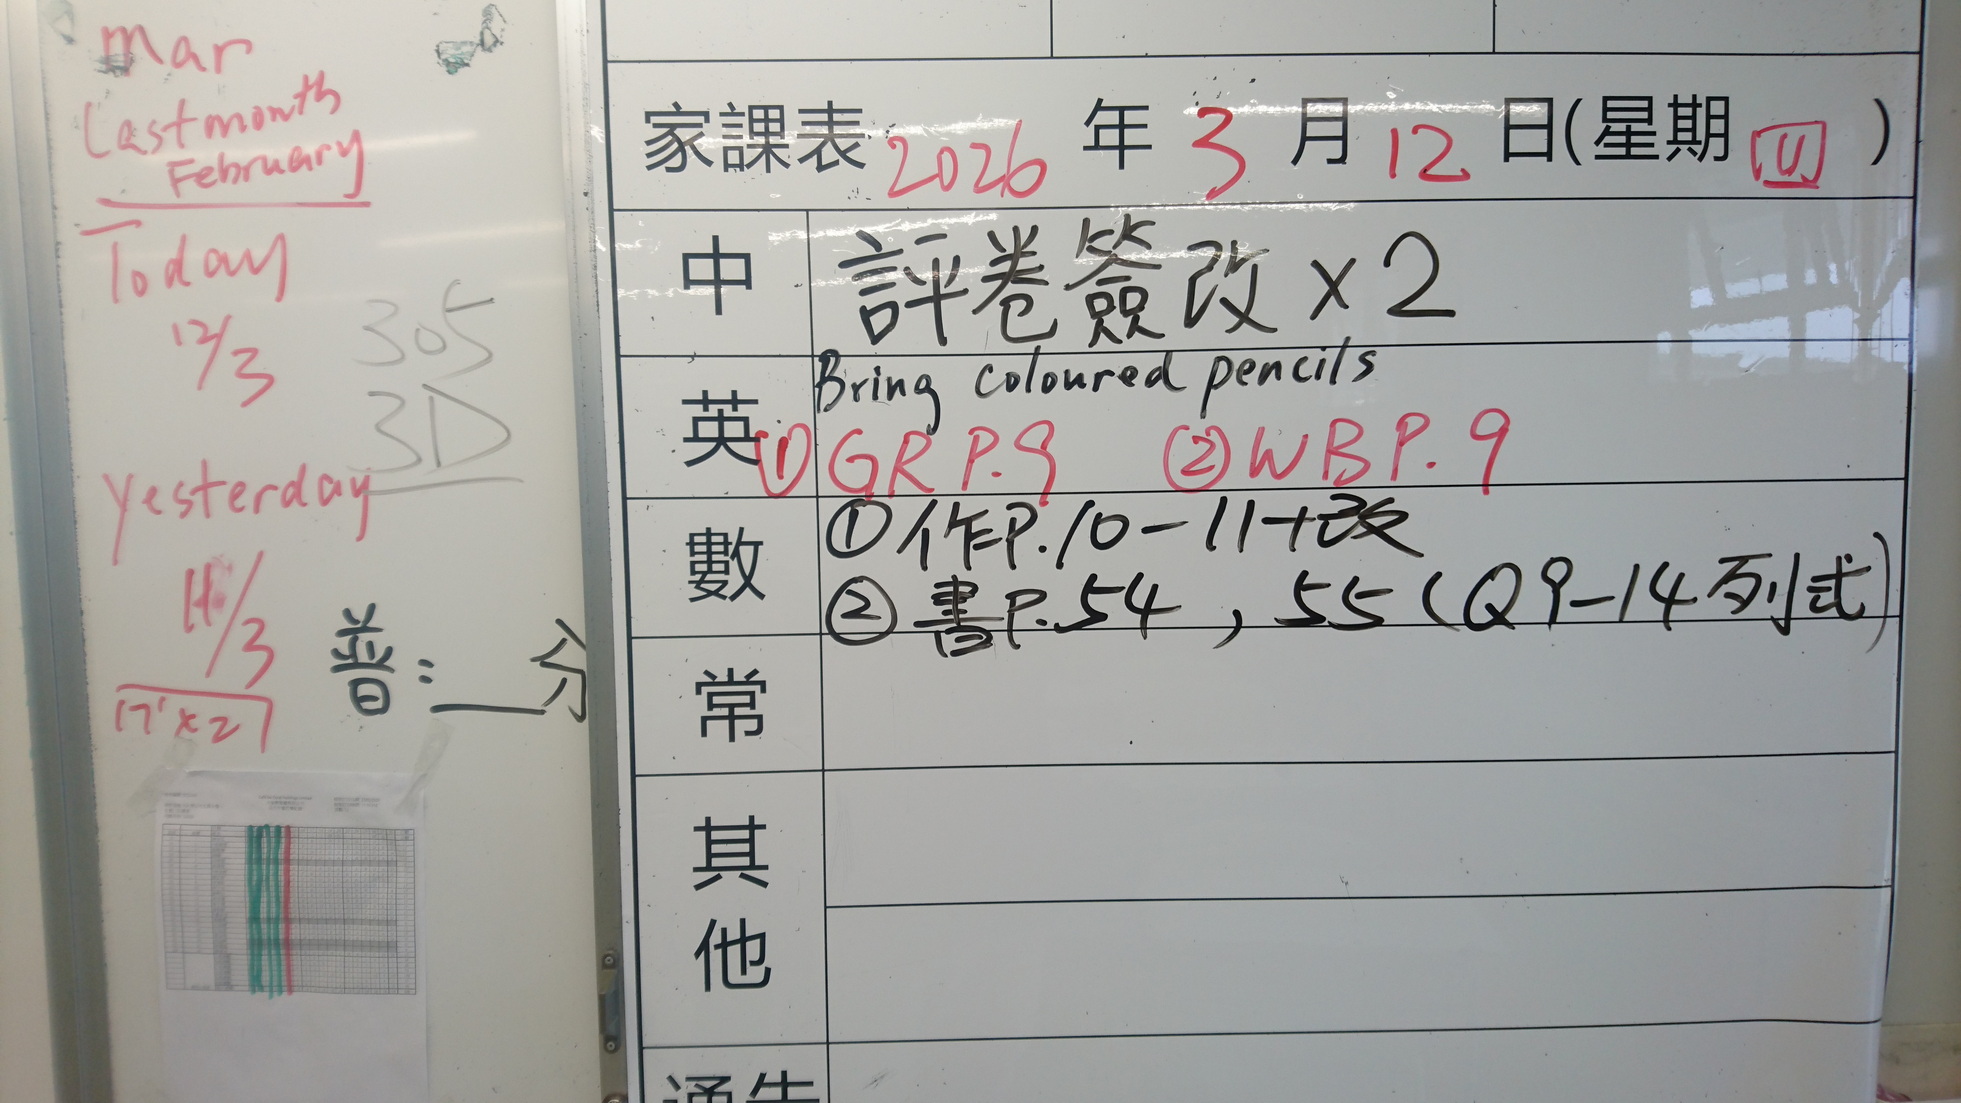 mar
Last month
February
Today
12/3
305
3D
yesterday
11/3
17' x 2
普：__分
家課表 2026 年 3 月 12 日(星期 四 )
中
評卷簽改 x 2
英
Bring coloured pencils
① GR P.9 ② WB P.9
數
① 作P.10-11+改
② 書P.54，55（Q9-14列式）
常
其他
通告